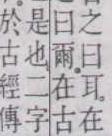 之曰耳在
曰爾。在古
是也二字
於古經傳